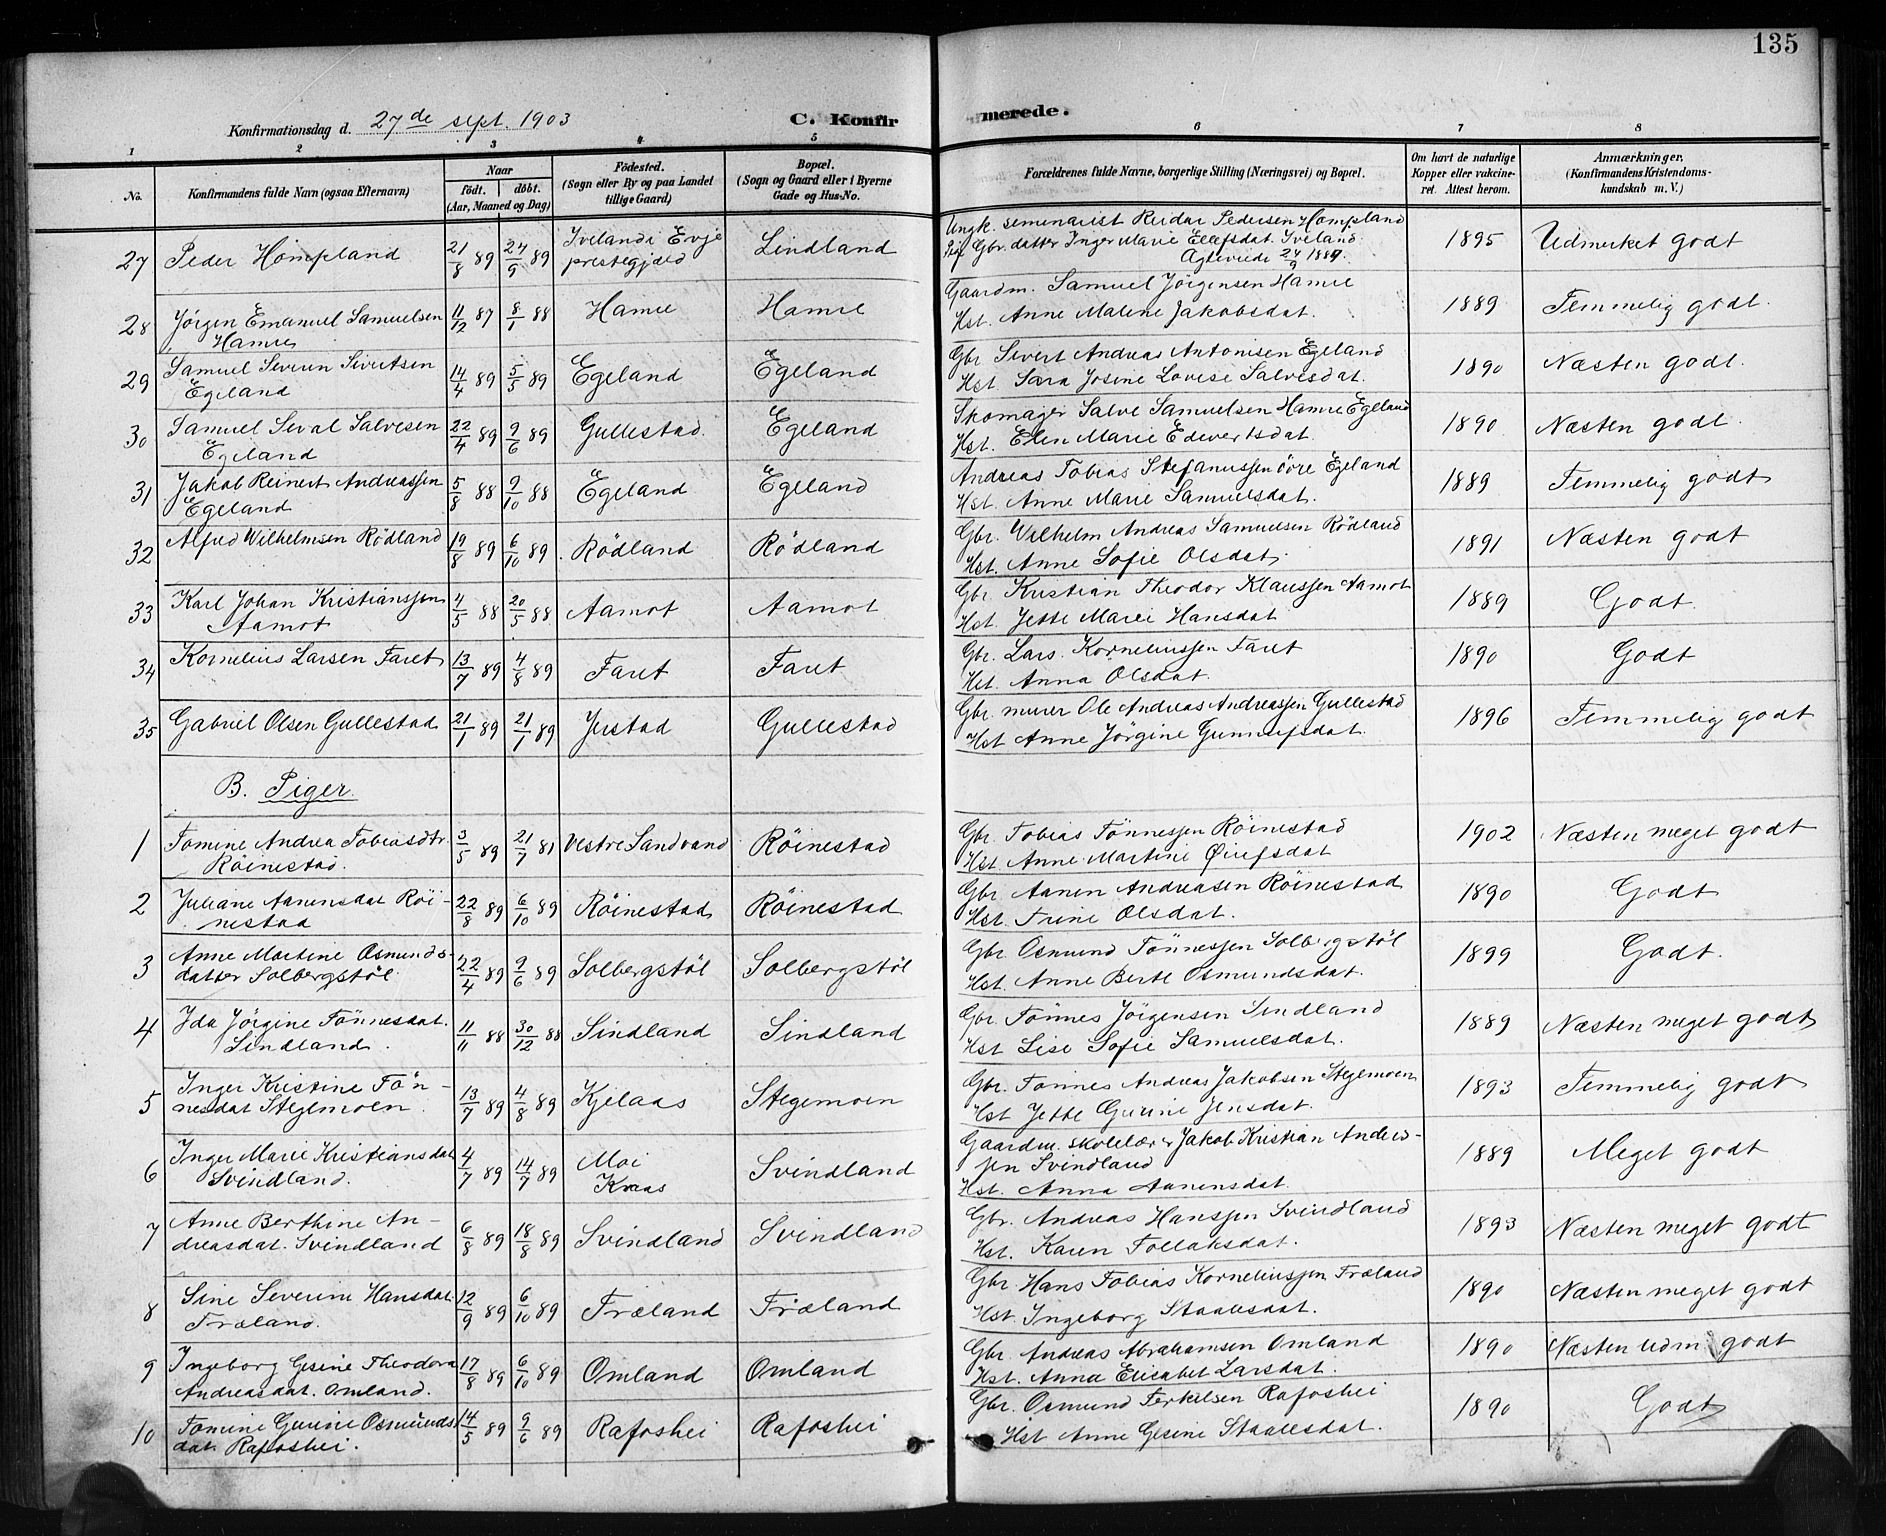 135
Konfirmationsdag d. 27de sept. 1903
C. Konfirmerede.
1 2 3 4 5 6 7 8
No. | Konfirmandens fulde Navn (ogsaa Efternavn) | Naar födt. döbt. (Aar, Maaned og Dag) | Födested. (Sogn eller By og paa Landet tillige Gaard) | Bopæl. (Sogn og Gaard eller i Byerne Gade og Hus-No. | Forældrenes fulde Navne, borgerlige Stilling (Næringsvei) og Bopæl. | Om havt de naturlige Kopper eller vakcineret. Attest herom. | Anmærkninger. (Konfirmandens Kristendomskundskab m. V.)
27 Peder Hompland 21/8 89 24/9 89 Ivelandi Evje prestegjæld Lindland Ungk. seminarist Reidar Pedersen Hompland Pig. Gbr. datter Inger Marie Ellefsdat. Iveland. Agteviede 24/9 1889. 1895 Udmerket godt
28 Jörgen Emanuel Samuelsen Hamre 11/12 87 8/1 88 Hamre Hamre Gaardm. Samuel Jörgensen Hamre Hst. Anne Malene Jakobsdat. 1889 Temmelig godt.
29 Samuel Severin Sivertsen Egeland 14/4 89 5/5 89 Egeland Egeland Gbr Sivert Andreas Antonisen Egeland Hst. Sara Josine Lovise Salvesdat. 1890 Næsten godt.
30 Samuel Sival Salvesen Egeland 22/4 89 9/6 89 Gullestad. Egeland Skomager Salve Samuelsen Hamre Egeland Hst. Elen Marie Edevertsdat. 1890 Næsten godt.
31 Jakob Reinert Andreassen Egeland 5/8 88 9/10 88 Egeland Egeland Andreas Tobias Stefanussen övre Egeland Hst. Anne Marie Samuelsdat. 1889 Temmelig godt
32 Alfred Wilhelmsen Rödland 19/8 89 6/10 89 Rödland Rödland Gbr. Wilhelm Andreas Samuelsen Rödland Hst. Anne Sofie Olsdat. 1891 Næsten godt
33 Karl Johan Kristianssen Aamot 4/5 88 20/5 88 Aamot Aamot Gbr Kristian Theodor Klaussen Aamot Hst. Jette Marie Hansdat 1889 Godt.
34 Kornelius Larsen Faret 13/7 89 4/8 89 Faret Faret Gbr. Lars Korneliussen Faret Hst. Anna Olsdat. 1890 Godt
35 Gabriel Olsen Gullestad 21/1 89 21/1 89 Jerstad Gullestad Gbr. murer Ole Andreas Andreassen Gullestad Hst Anne Jörgine Gunneufsdat. 1896 Temmelig godt
B. Piger.
1 Tomine Andrea Tobiasdtr. Röinestad. 3/5 89 21/7 81 Vestre Sandvand Röinestad Gbr. Tobias Tönnessen Röinestad Hst. Anne Martine Øiufsdat 1902 Næsten meget godt
2 Juliane Aanensdat Röinestad 22/8 89 6/10 89 Röinestad Röinestad Gbr Aanen Andreasen Röinestad Hst. Trine Olsdat. 1890 Godt
3 Anne Martine Osmundsdatter Solbergstöl. 22/4 89 9/6 89 Solbergstöl Solbergstöl Gbr. Osmund Tönnessen Solbergstöl Hst. Anne Berte Osmundsdat. 1899 Godt.
4 Ida Jörgine Tönnesdat. Sindland. 11/11 88 30/12 88 Sindland Sindland Gbr. Tönnes Jörgensen Sindland Hst Lise Sofie Samuelsdat. 1889 Næsten meget godt
5 Inger Kristine Tönnesdat Stegemoen. 13/7 89 4/8 89 Kjelaas Stegemoen Gbr. Tönnes Andreas Jakobsen Stegemoen Hst Jette Gurine Jensdat. 1893 Temmelig godt
6 Inger Marie Kristiansdat Svindland. 4/7 89 14/7 89 Moi Kvaas Svindland Gaardm. skolelærer Jakob Kristian Andersen Svindland Hst. Anna Aanensdat. 1889 Meget godt
7 Anne Berthine Andreasdat. Svindland 6/8 89 18/8 89 Svindland Svindland Gbr. Andreas Hanssen Svindland Hst. Karen Tollaksdat. 1893 Næsten meget godt
8 Sine Severine Hansdat. Fræland. 12/9 89 6/10 89 Fræland Fræland Gbr. Hans Tobias Korneliussen Fræland Hst. Ingeborg Staalesdat. 1890 Næsten meget godt
9 Ingeborg Gesine Theodora Andreasdat. Omland. 17/8 89 6/10 89 Omland Omland Gbr. Andreas Abrahamsen Omland Hst. Anna Elisabet Larsdat. 1890 Næsten udm. godt
10 Tomine Gurine Osmundsdat. Rafoshei. 14/5 89 9/6 89 Rafoshei Rafoshei Gbr. Osmund Terkelsen Rafoshei Hst Anne Gesine Staalesdat. 1890 Godt